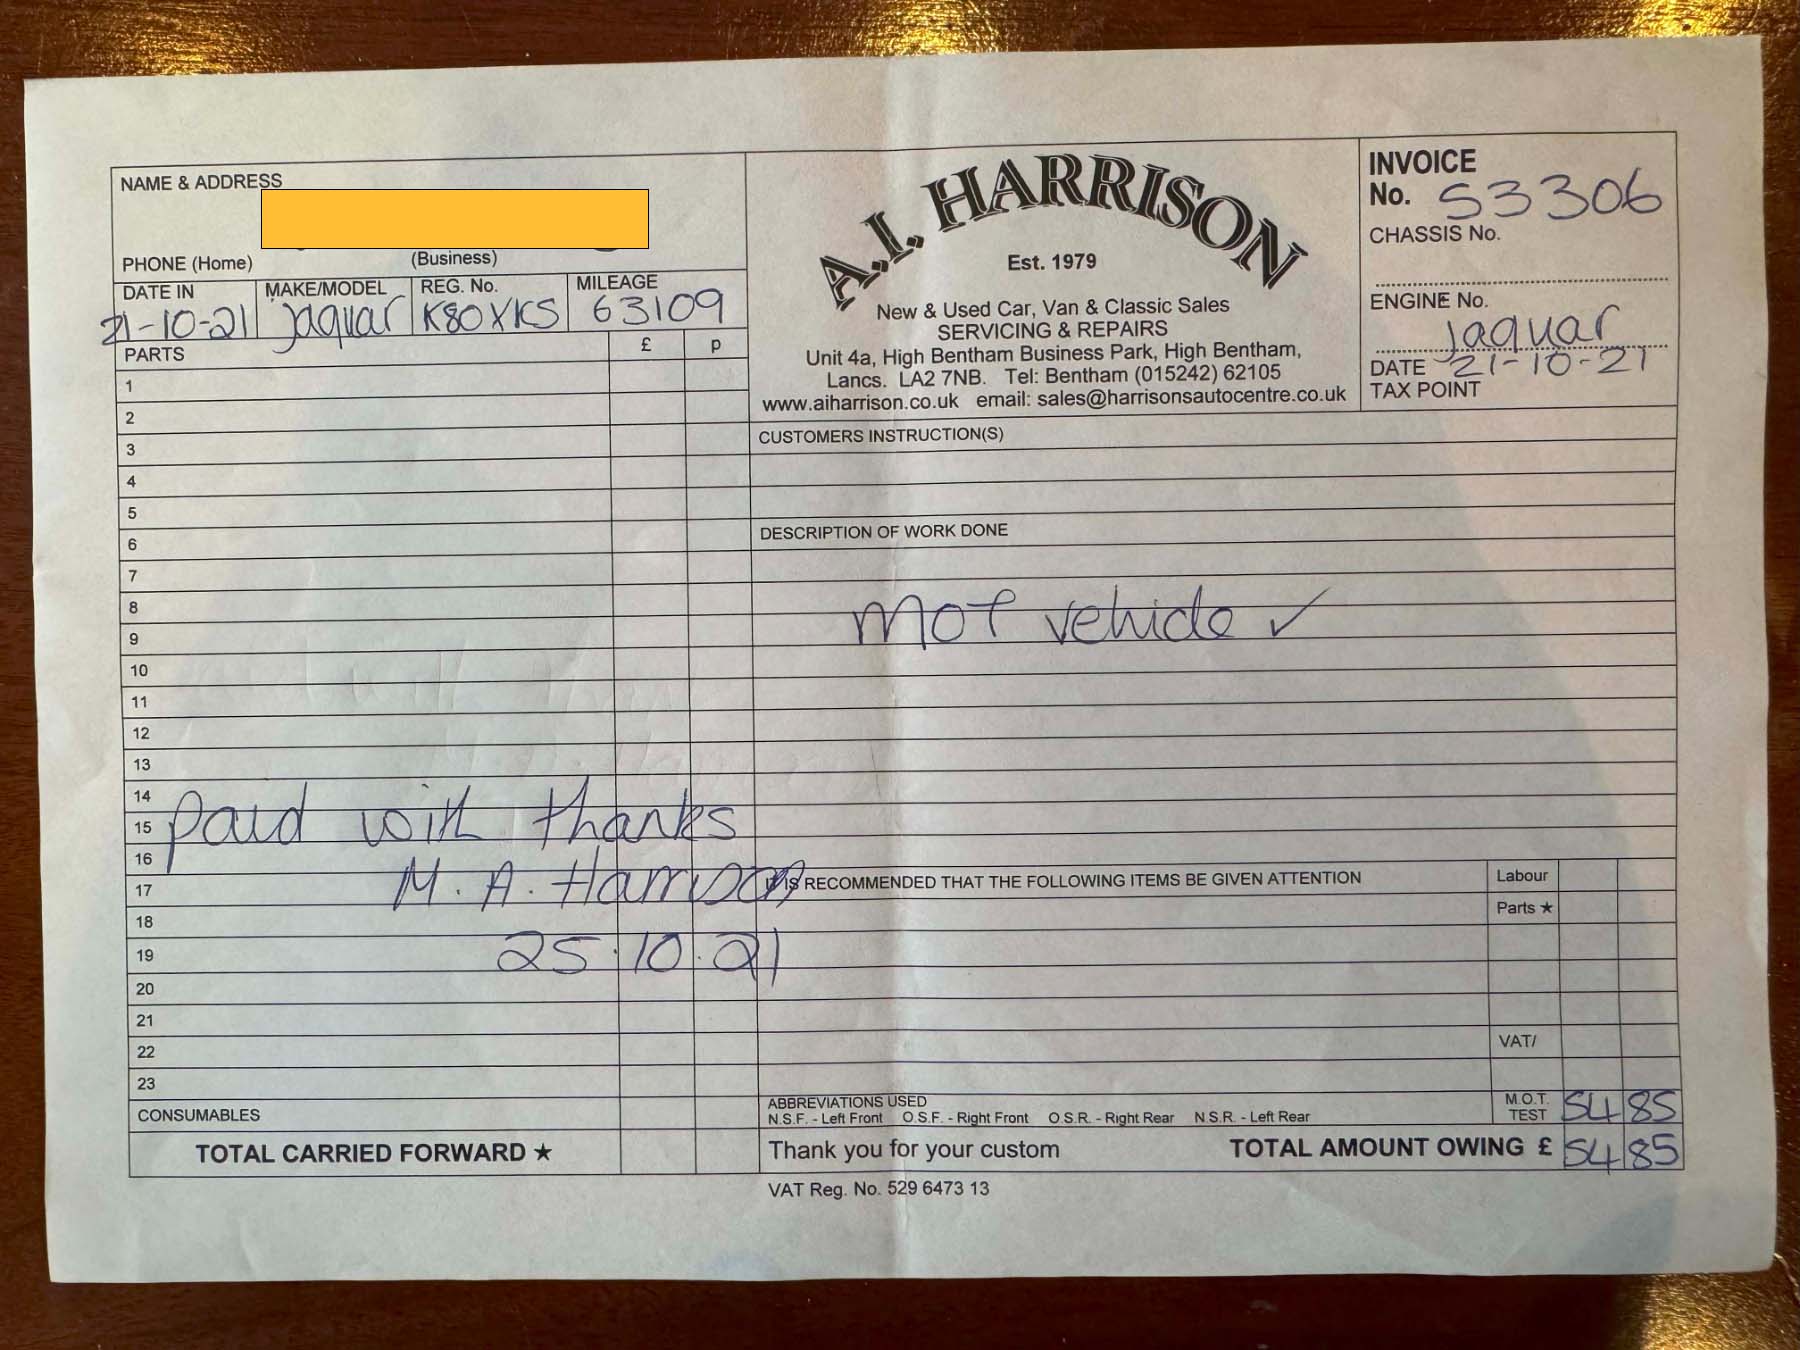 NAME & ADDRESS
PHONE (Home) (Business)
DATE IN MAKE/MODEL REG. No. MILEAGE
21-10-21 Jaguar K80XKS 63109
PARTS £ p
1
2
3
4
5
6
7
8
9
10
11
12
13
14
15
16
17
18
19
20
21
22
23
Paid with thanks
M. A. Harrison
25.10.21
CONSUMABLES
TOTAL CARRIED FORWARD ★
A.I. HARRISON
Est. 1979
New & Used Car, Van & Classic Sales
SERVICING & REPAIRS
Unit 4a, High Bentham Business Park, High Bentham,
Lancs. LA2 7NB. Tel: Bentham (015242) 62105
www.aiharrison.co.uk email: sales@harrisonsautocentre.co.uk
INVOICE
No. 53306
CHASSIS No.
ENGINE No.
Jaguar
DATE 21-10-21
TAX POINT
CUSTOMERS INSTRUCTION(S)
DESCRIPTION OF WORK DONE
MOT vehicle ✓
IT IS RECOMMENDED THAT THE FOLLOWING ITEMS BE GIVEN ATTENTION
Labour
Parts ★
VAT/
ABBREVIATIONS USED
N.S.F. - Left Front O.S.F. - Right Front O.S.R. - Right Rear N.S.R. - Left Rear
M.O.T. TEST 54 85
Thank you for your custom
TOTAL AMOUNT OWING £ 54 85
VAT Reg. No. 529 6473 13